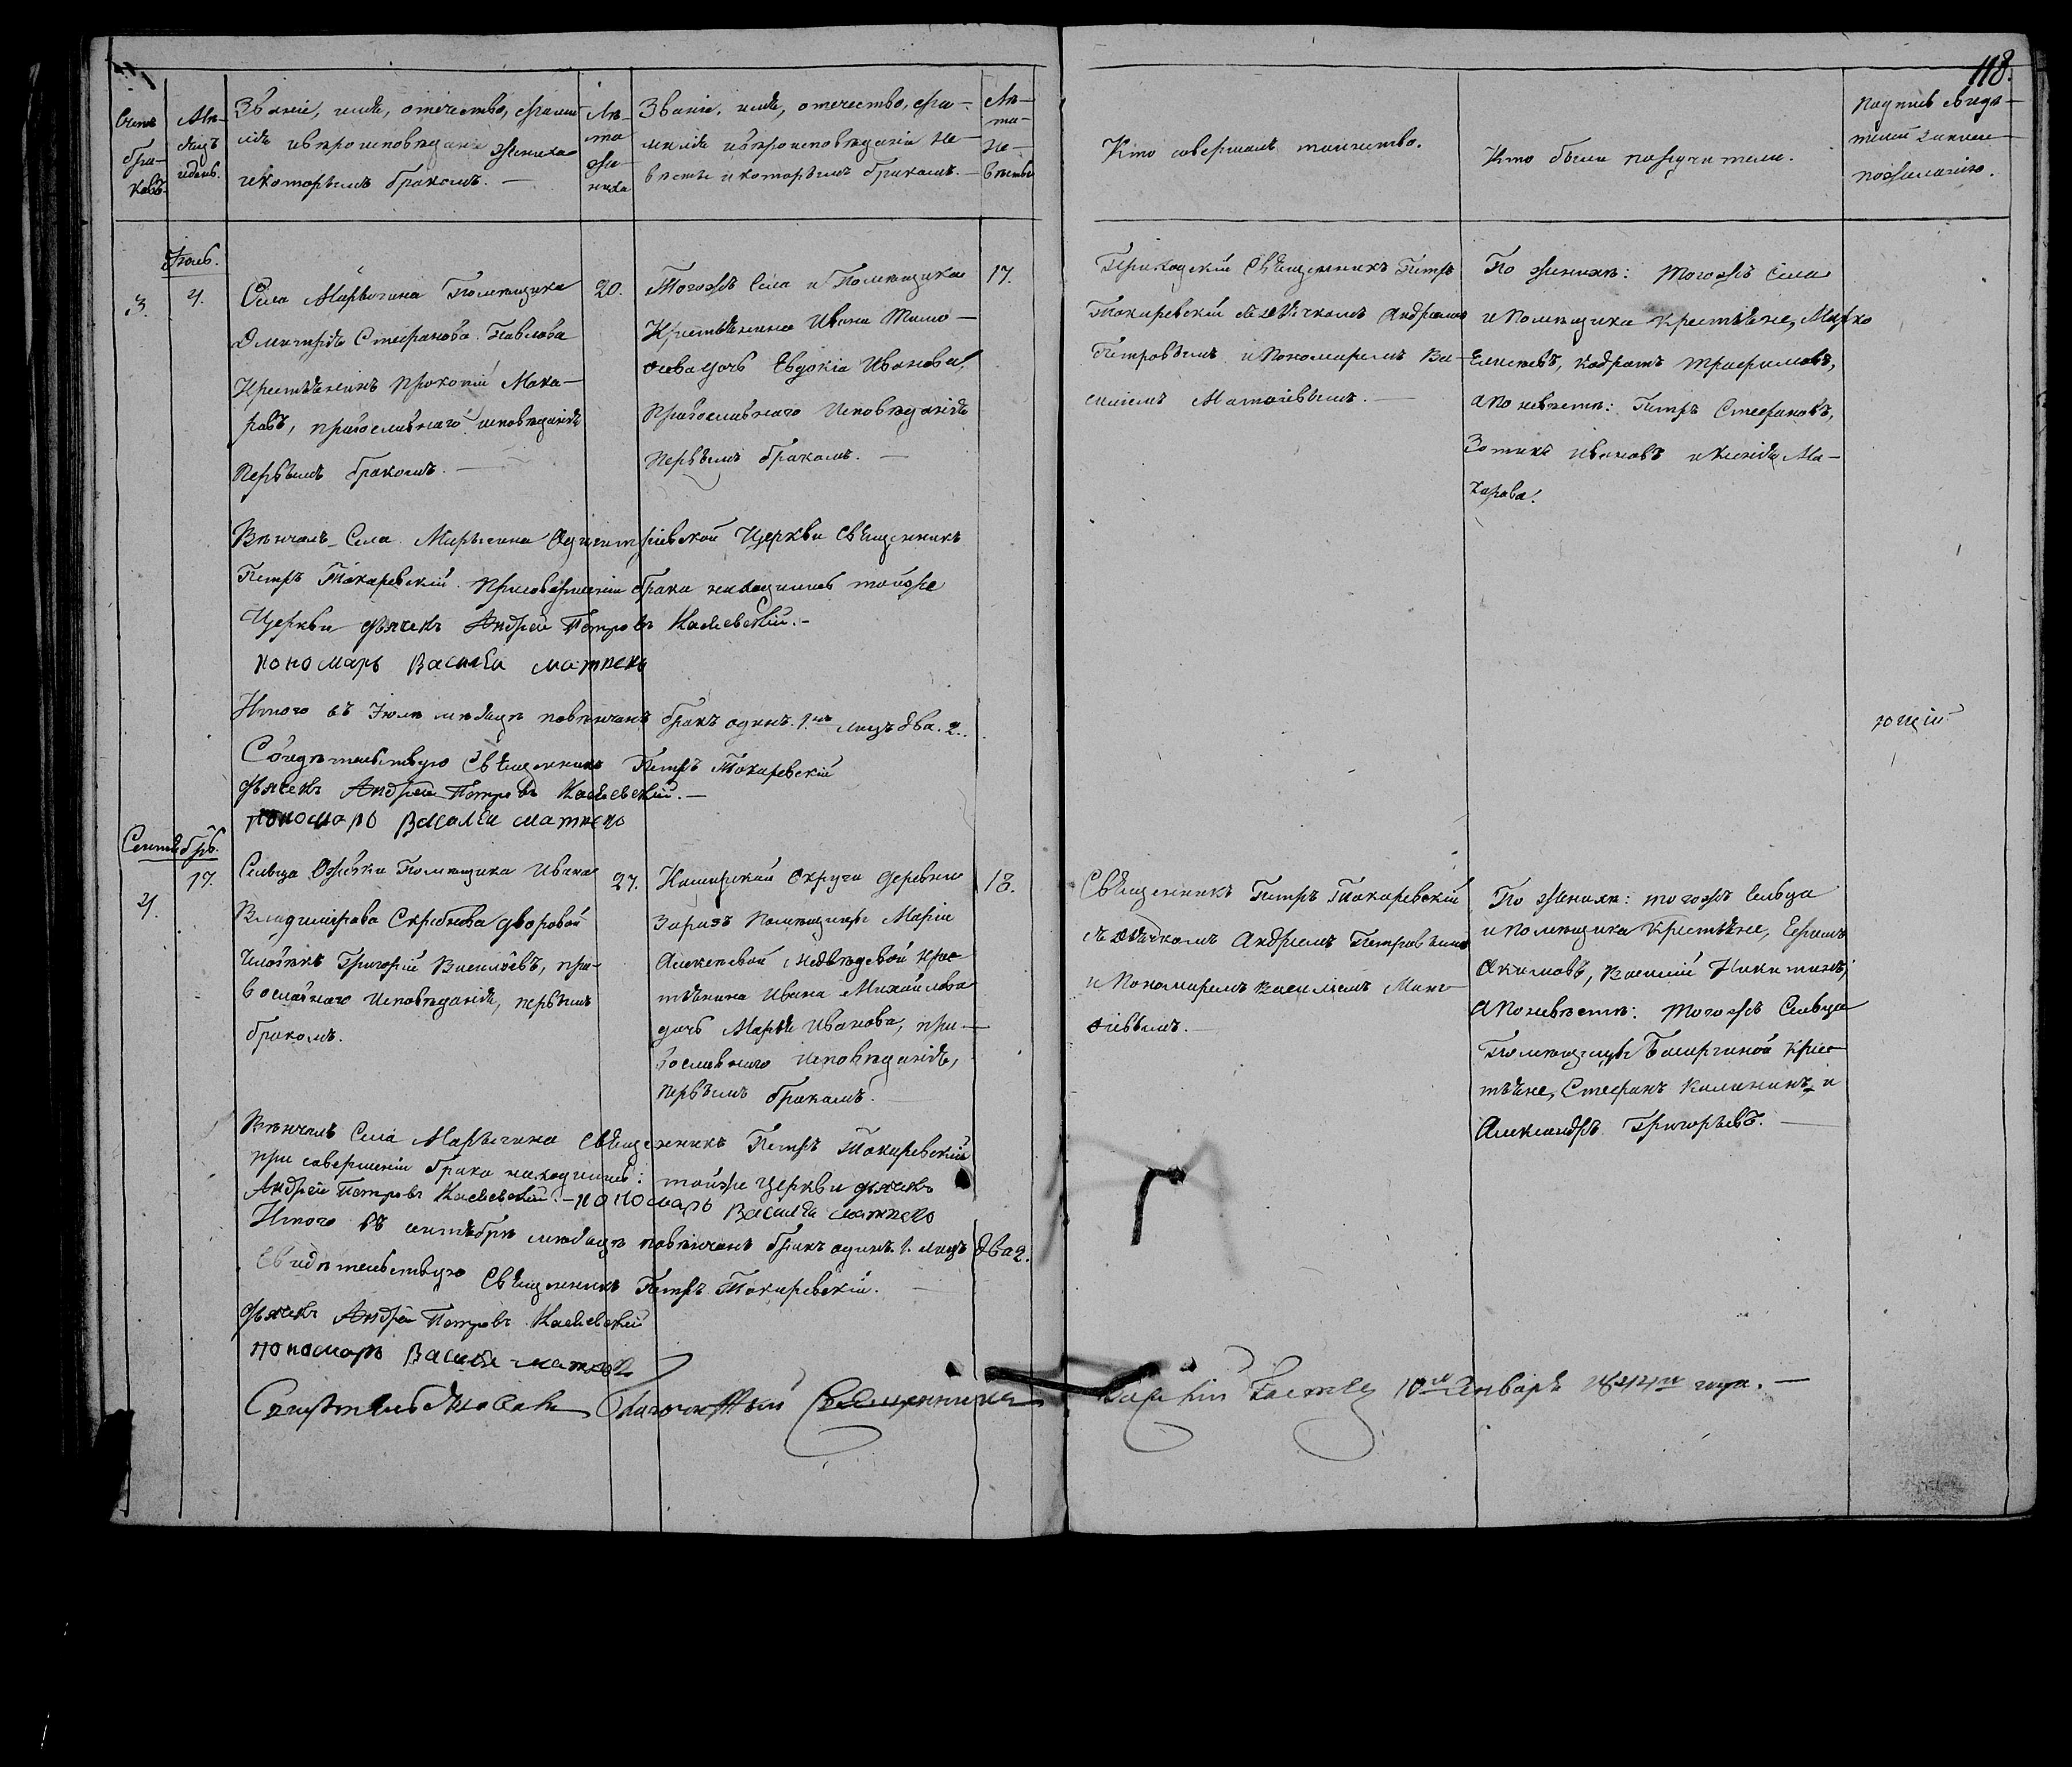 118.
Счетъ
бра-
ковъ.
Мѣ-
сяцъ
и день.
Званіе, имя, отечество, фами-
лія и вѣроисповѣданіе жениха
и которымъ бракомъ. —
Лѣ-
та
же-
ниха
Званіе, имя, отечество, фа-
милія и вѣроисповѣданіе не-
вѣсты и которымъ бракомъ. —
Лѣ-
та
не-
вѣсты
Кто совершалъ таинство.
Кто были поручители.
Подпись свидѣ-
телей записи
по желанію.
Іюль.
3.
4.
Села Марыгина Помѣщика
Дмитрія Стефанова Павлова
Крестьянинъ Прокопій Мака-
ровъ, православнаго исповѣданія
первымъ бракомъ. —
20.
Тогожъ Села и Помѣщика
Крестьянина Ивана Тимо-
ѳеева дочь Евдокія Иванова,
православнаго исповѣданія
первымъ бракомъ. —
17.
Приходскій Священникъ Петръ
Токаревскій съ дьячкомъ Андреемъ
Петровымъ и Пономаремъ Ва-
силіемъ Матѳіевымъ. —
По женихѣ: тогожъ Села
и Помѣщика крестьяне, Марко
Кодратъ Трофимовъ,
а по невѣстѣ: Петръ Стефановъ,
Иванов и Ма-
карова.
Вѣнчалъ Села Марыгина Церкви Священникъ
Петръ Токаревскій. При совершеніи брака находились тойже
Церкви дьячекъ Андрей Петровъ
пономарь Василеи матвеи
Итого въ Іюлѣ мѣсяцѣ повѣнчанъ бракъ одинъ. 1. лицъ два. 2.
ющій
Свидѣтельствую Священникъ Петръ Токаревскій
дьячекъ Андрей Петровъ
пономарь Василеи матвеи
Сентябрь.
4.
17.
Сельца Помѣщика Ивана
Владимірова дворовой
человѣкъ Григорій Васильевъ, пра-
вославнаго исповѣданія, первымъ
бракомъ.
27.
Каширской Округи деревни
Заразъ Помѣщицы Маріи
Алексѣевой Медвѣдевой крес-
тьянина Ивана Михайлова
дочь Марья Иванова, пра-
вославнаго исповѣданія,
первымъ бракомъ.
18.
Священникъ Петръ Токаревскій
съ дьячкомъ Андреемъ Петровымъ
и Пономаремъ Василіемъ Мат-
ѳіевымъ. —
По женихѣ: тогожъ Сельца
и Помѣщика крестьяне,
Акимовъ, Василій Никитинъ,
а по невѣстѣ: тогожъ Сельца
Помѣщицы крес-
тьяне, Стефанъ Калининъ, и
Александръ Григорьевъ. —
Вѣнчалъ Села Марыгина Священникъ Петръ Токаревскій
при совершеніи брака находились: тойже Церкви дьячекъ
Андрей Петровъ — пономарь Василеи матвеи
Итого въ сентябрѣ мѣсяцѣ повѣнчанъ бракъ одинъ. 1. лицъ два 2.
Свидѣтельствую Священникъ Петръ Токаревскій. —
дьячекъ Андрей Петровъ
пономарь Василеи
Свидѣтельствовалъ Благочинный Священникъ 10го Генваря 1844го года. —